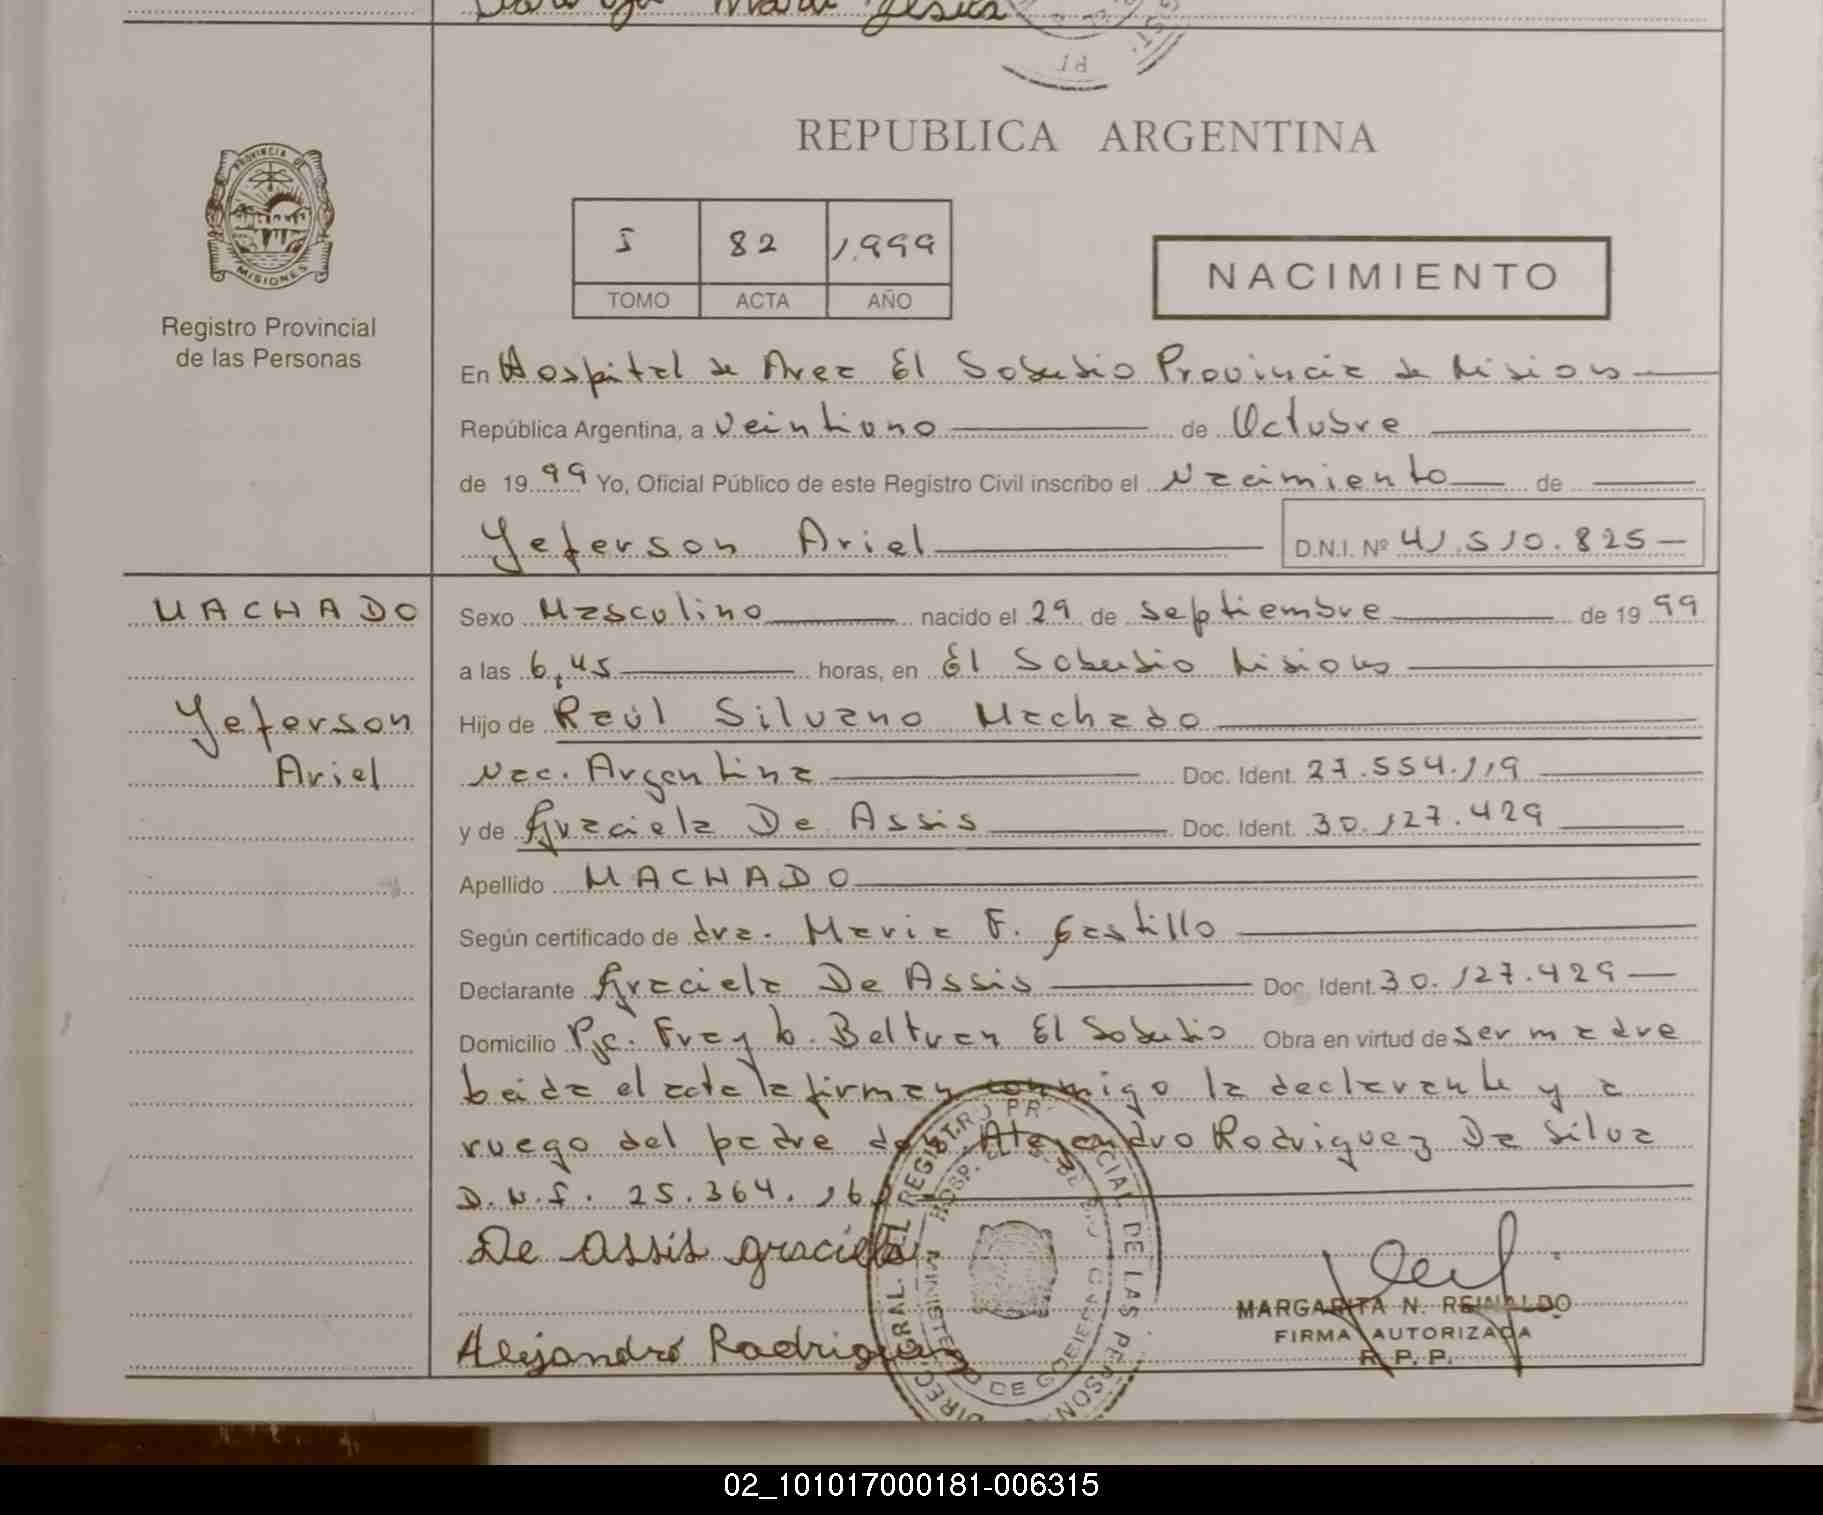 Maria Jesús
REPUBLICA ARGENTINA
PROVINCIA DE MISIONES
Registro Provincial
de las Personas
I 82 1.999
TOMO ACTA AÑO
NACIMIENTO
En Hospital de Area El Soberbio Provincia de Misiones
República Argentina, a veintiuno de Octubre
de 1999 Yo, Oficial Público de este Registro Civil inscribo el Nacimiento de
Yeferson Ariel D.N.I. Nº 41.510.825
MACHADO
Yeferson
Ariel
Sexo Masculino nacido el 29 de septiembre de 1999
a las 6,45 horas, en El Soberbio Misiones
Hijo de Raúl Silvano Machado
Nac. Argentina Doc. Ident. 27.554.119
y de Graciela De Assis Doc. Ident. 30.127.429
Apellido MACHADO
Según certificado de dra. Maria F. Castillo
Declarante Graciela De Assis Doc. Ident. 30.127.429
Domicilio Pje. Fray L. Beltran El Soberbio Obra en virtud de ser madre
Leida el acta la firman conmigo la declarante y a
ruego del padre don Alejandro Rodriguez Da Silva
D.N.I. 25.364.16
De Assis graciela
Alejandro Rodriguez
MARGARITA N. REINALDO
FIRMA AUTORIZADA
R. P. P.
DIREC GRAL. EL REGISTRO PROVINCIAL DE LAS PERSONAS
MINISTERIO DE GOBIERNO
HOSP. EL SOBERBIO
02_101017000181-006315